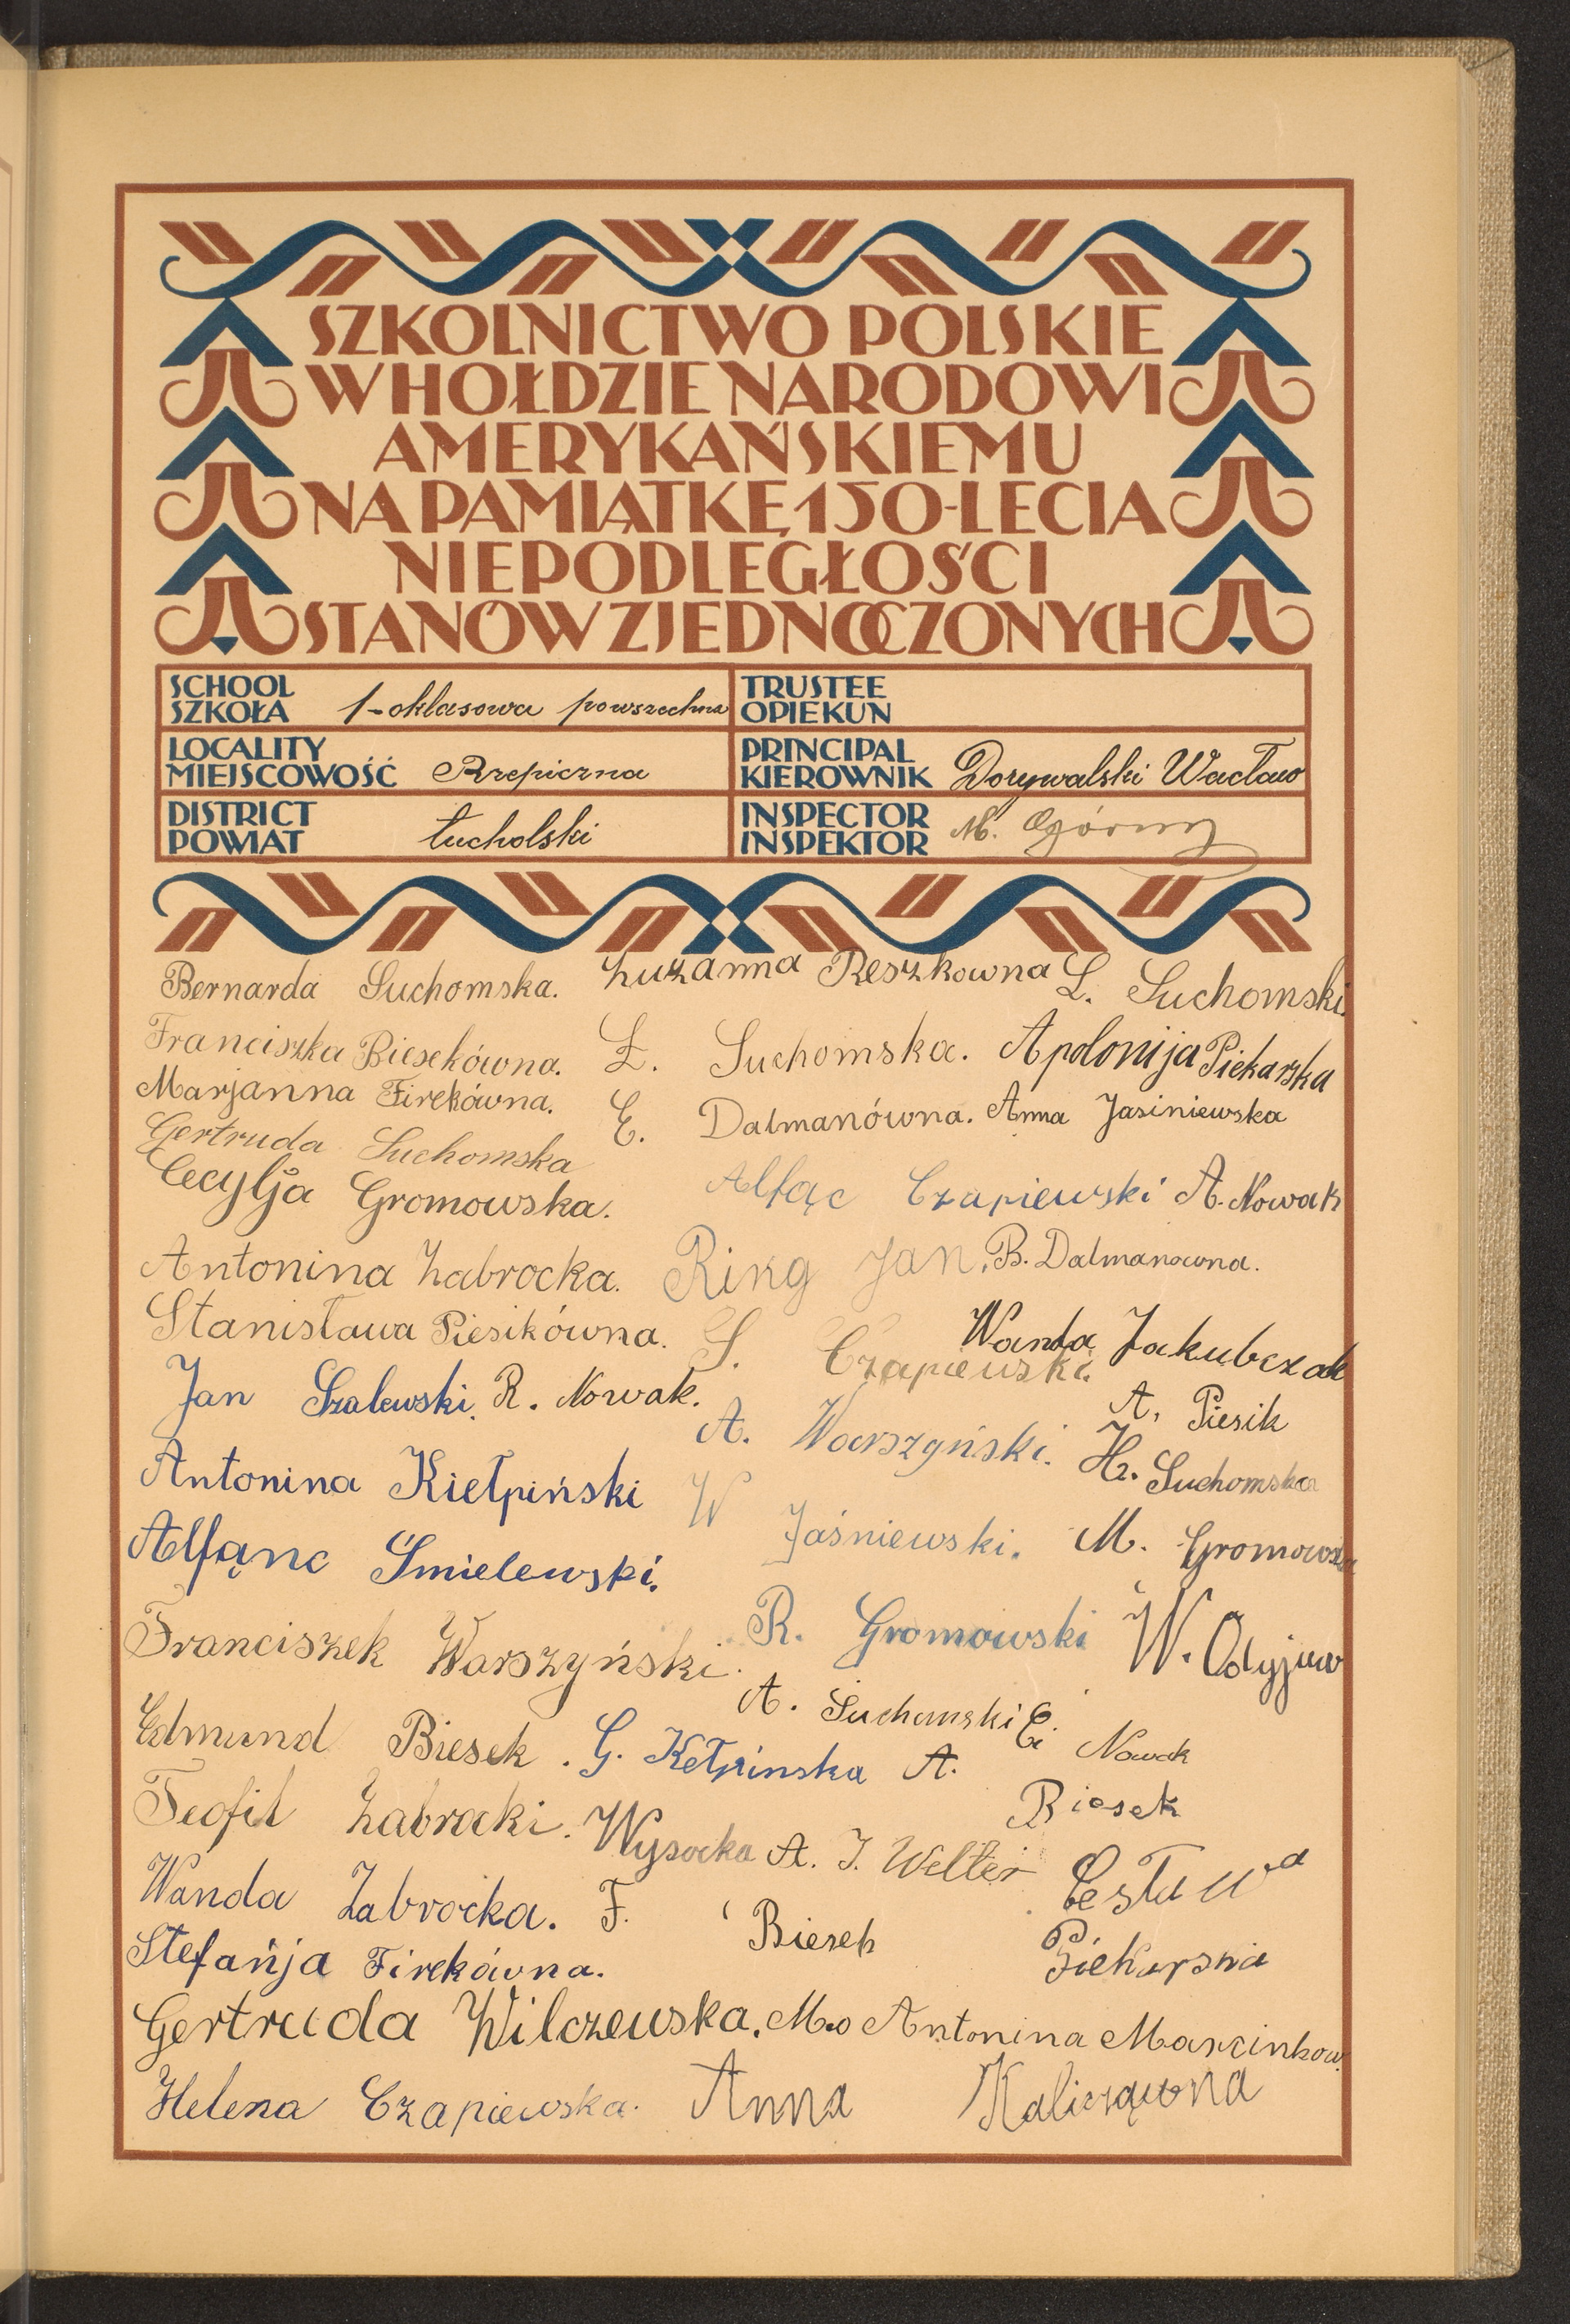 SZKOLNICTWO POLSKIE
W HOŁDZIE NARODOWI
AMERYKAŃSKIEMU
NA PAMIĄTKĘ 150-LECIA
NIEPODLEGŁOŚCI
STANÓW ZJEDNOCZONYCH
SCHOOL
SZKOŁA 1-oklasowa powszechna
TRUSTEE
OPIEKUN
LOCALITY
MIEJSCOWOŚĆ Rzepiczna
PRINCIPAL
KIEROWNIK Dorywalski Wacław
DISTRICT
POWIAT tucholski
INSPECTOR
INSPEKTOR M. Górny
Bernarda Suchomska. Zuzanna Reszkowna L. Suchomski.
Franciszka Biesekówna. Ł. Suchomska. Apolonija Piekarska
Marjanna Firekówna. E. Dalmanówna. Anna Jasiniewska
Gertruda Suchomska
Cecylja Gromowska. Alfąc Czapiewski A. Nowak
Antonina Zabrocka. Ring Jan. B. Dalmanowna.
Stanisława Piesikówna. S. Czapiewski. Wanda Jakubczak
Jan Szalewski. R. Nowak. A. Warszyński. A. Piesik
Antonina Kiełpiński W Jaśniewski. H. Suchomska
Alfąnc Smielewski. M. Gromowska
Franciszek Warszyński. R. Gromowski W. Odyjew
A. Suchomski E. Nowak
Edmund Biesek. G. Kełpinska A. Biesek
Teofil Zabrocki. Wysocka A. J. Welter Cesława
Wanda Zabrocka. F. Biesek Piekarska
Stefańja Firekówna.
Gertruda Wilczewska. Antonina Marcinkow
Helena Czapiewska. Anna Kalicząwna